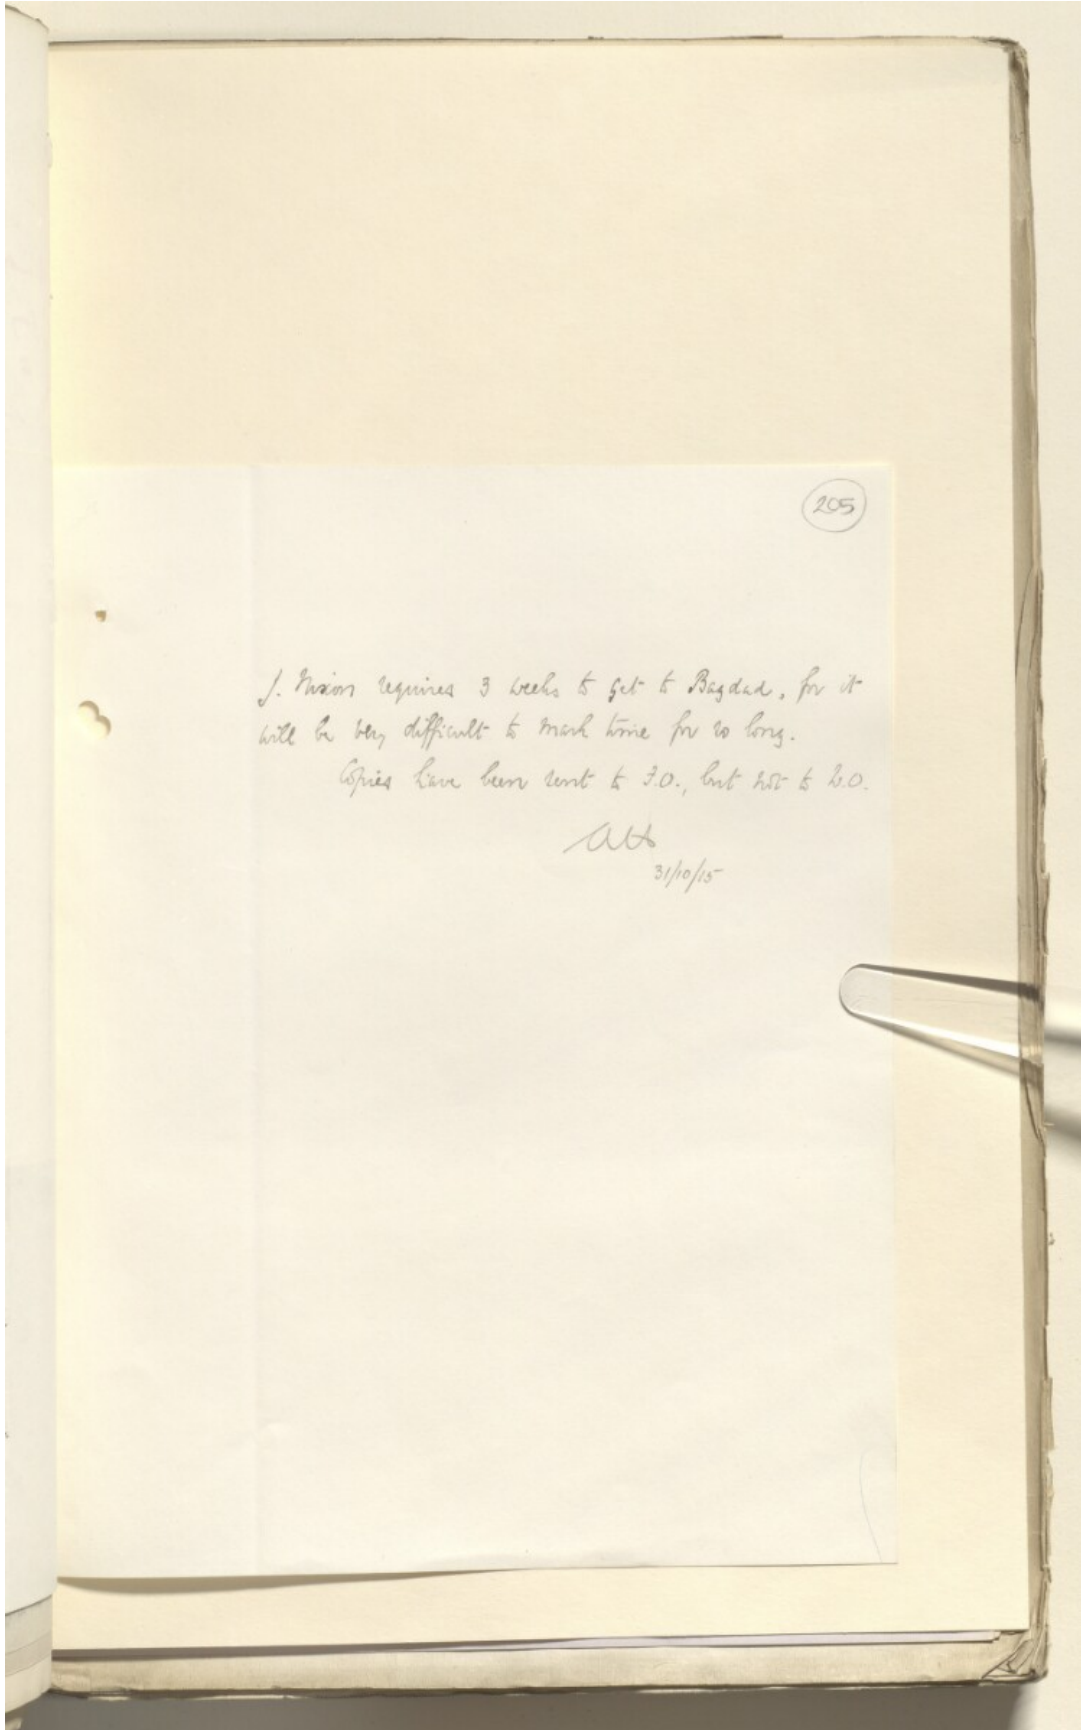 205
J. Nixon requires 3 weeks to get to Bagdad, for it
will be very difficult to mark time for so long.
Copies have been sent to F.O., but not to W.O.
31/10/15